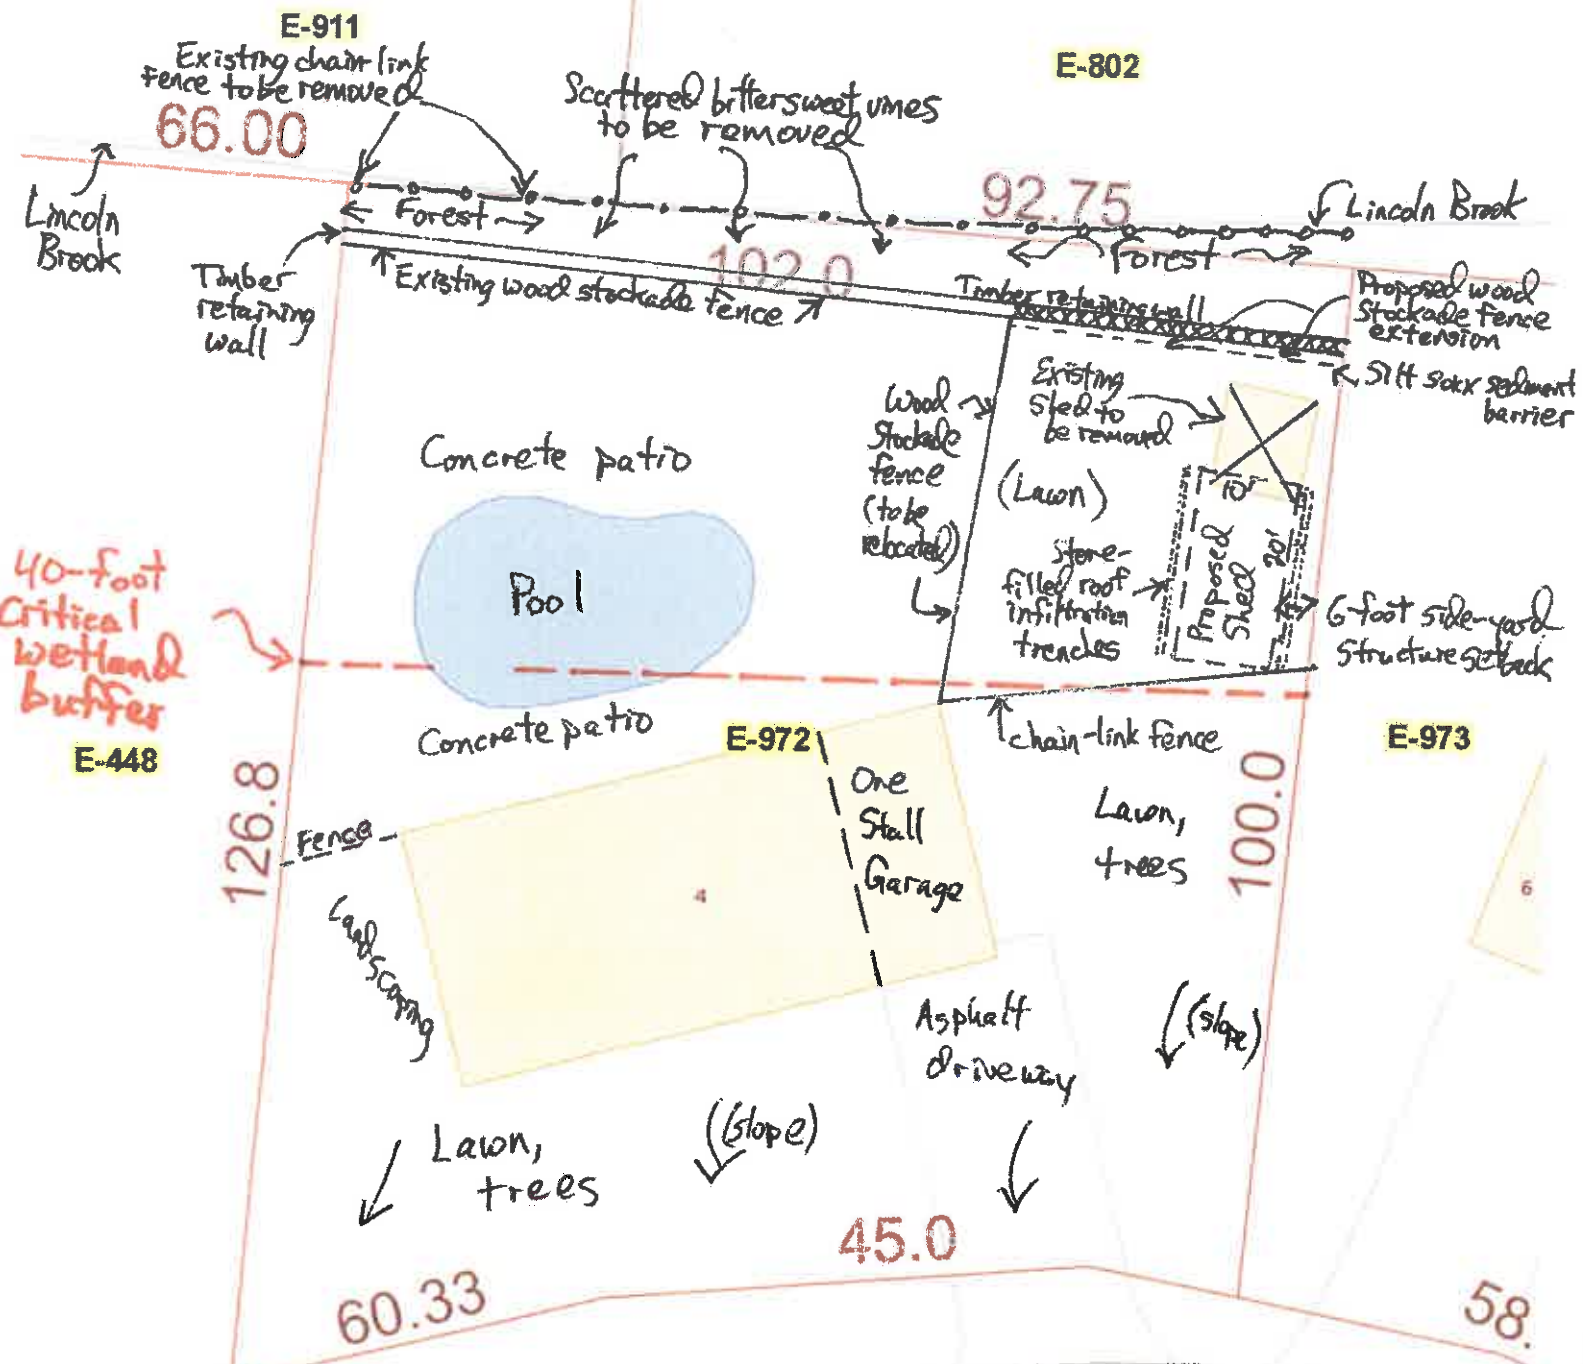 E-911
E-802
Existing chain link
Fence to be removed
Scattered bittersweet vines
to be removed
66.00
92.75
Lincoln
Brook
Lincoln Brook
Forest
Forest
102.0
Timber
retaining
wall
Existing wood stockade fence
Timber retaining wall
Proposed wood
Stockade fence
extension
Silt soxx sediment
barrier
Existing
shed to
be removed
Wood
Stockade
fence
(to be
relocated)
(Lawn)
Concrete patio
Pool
10'
20'
Proposed
Shed
Stone-
filled roof
infiltration
trenches
6-foot side-yard
Structure setback
40-foot
Critical
wetland
buffer
Concrete patio
E-972
chain-link fence
E-973
E-448
126.8
Fence
One
Stall
Garage
Lawn,
trees
100.0
4
6
Landscaping
Asphalt
driveway
(slope)
Lawn,
trees
(slope)
45.0
60.33
58.